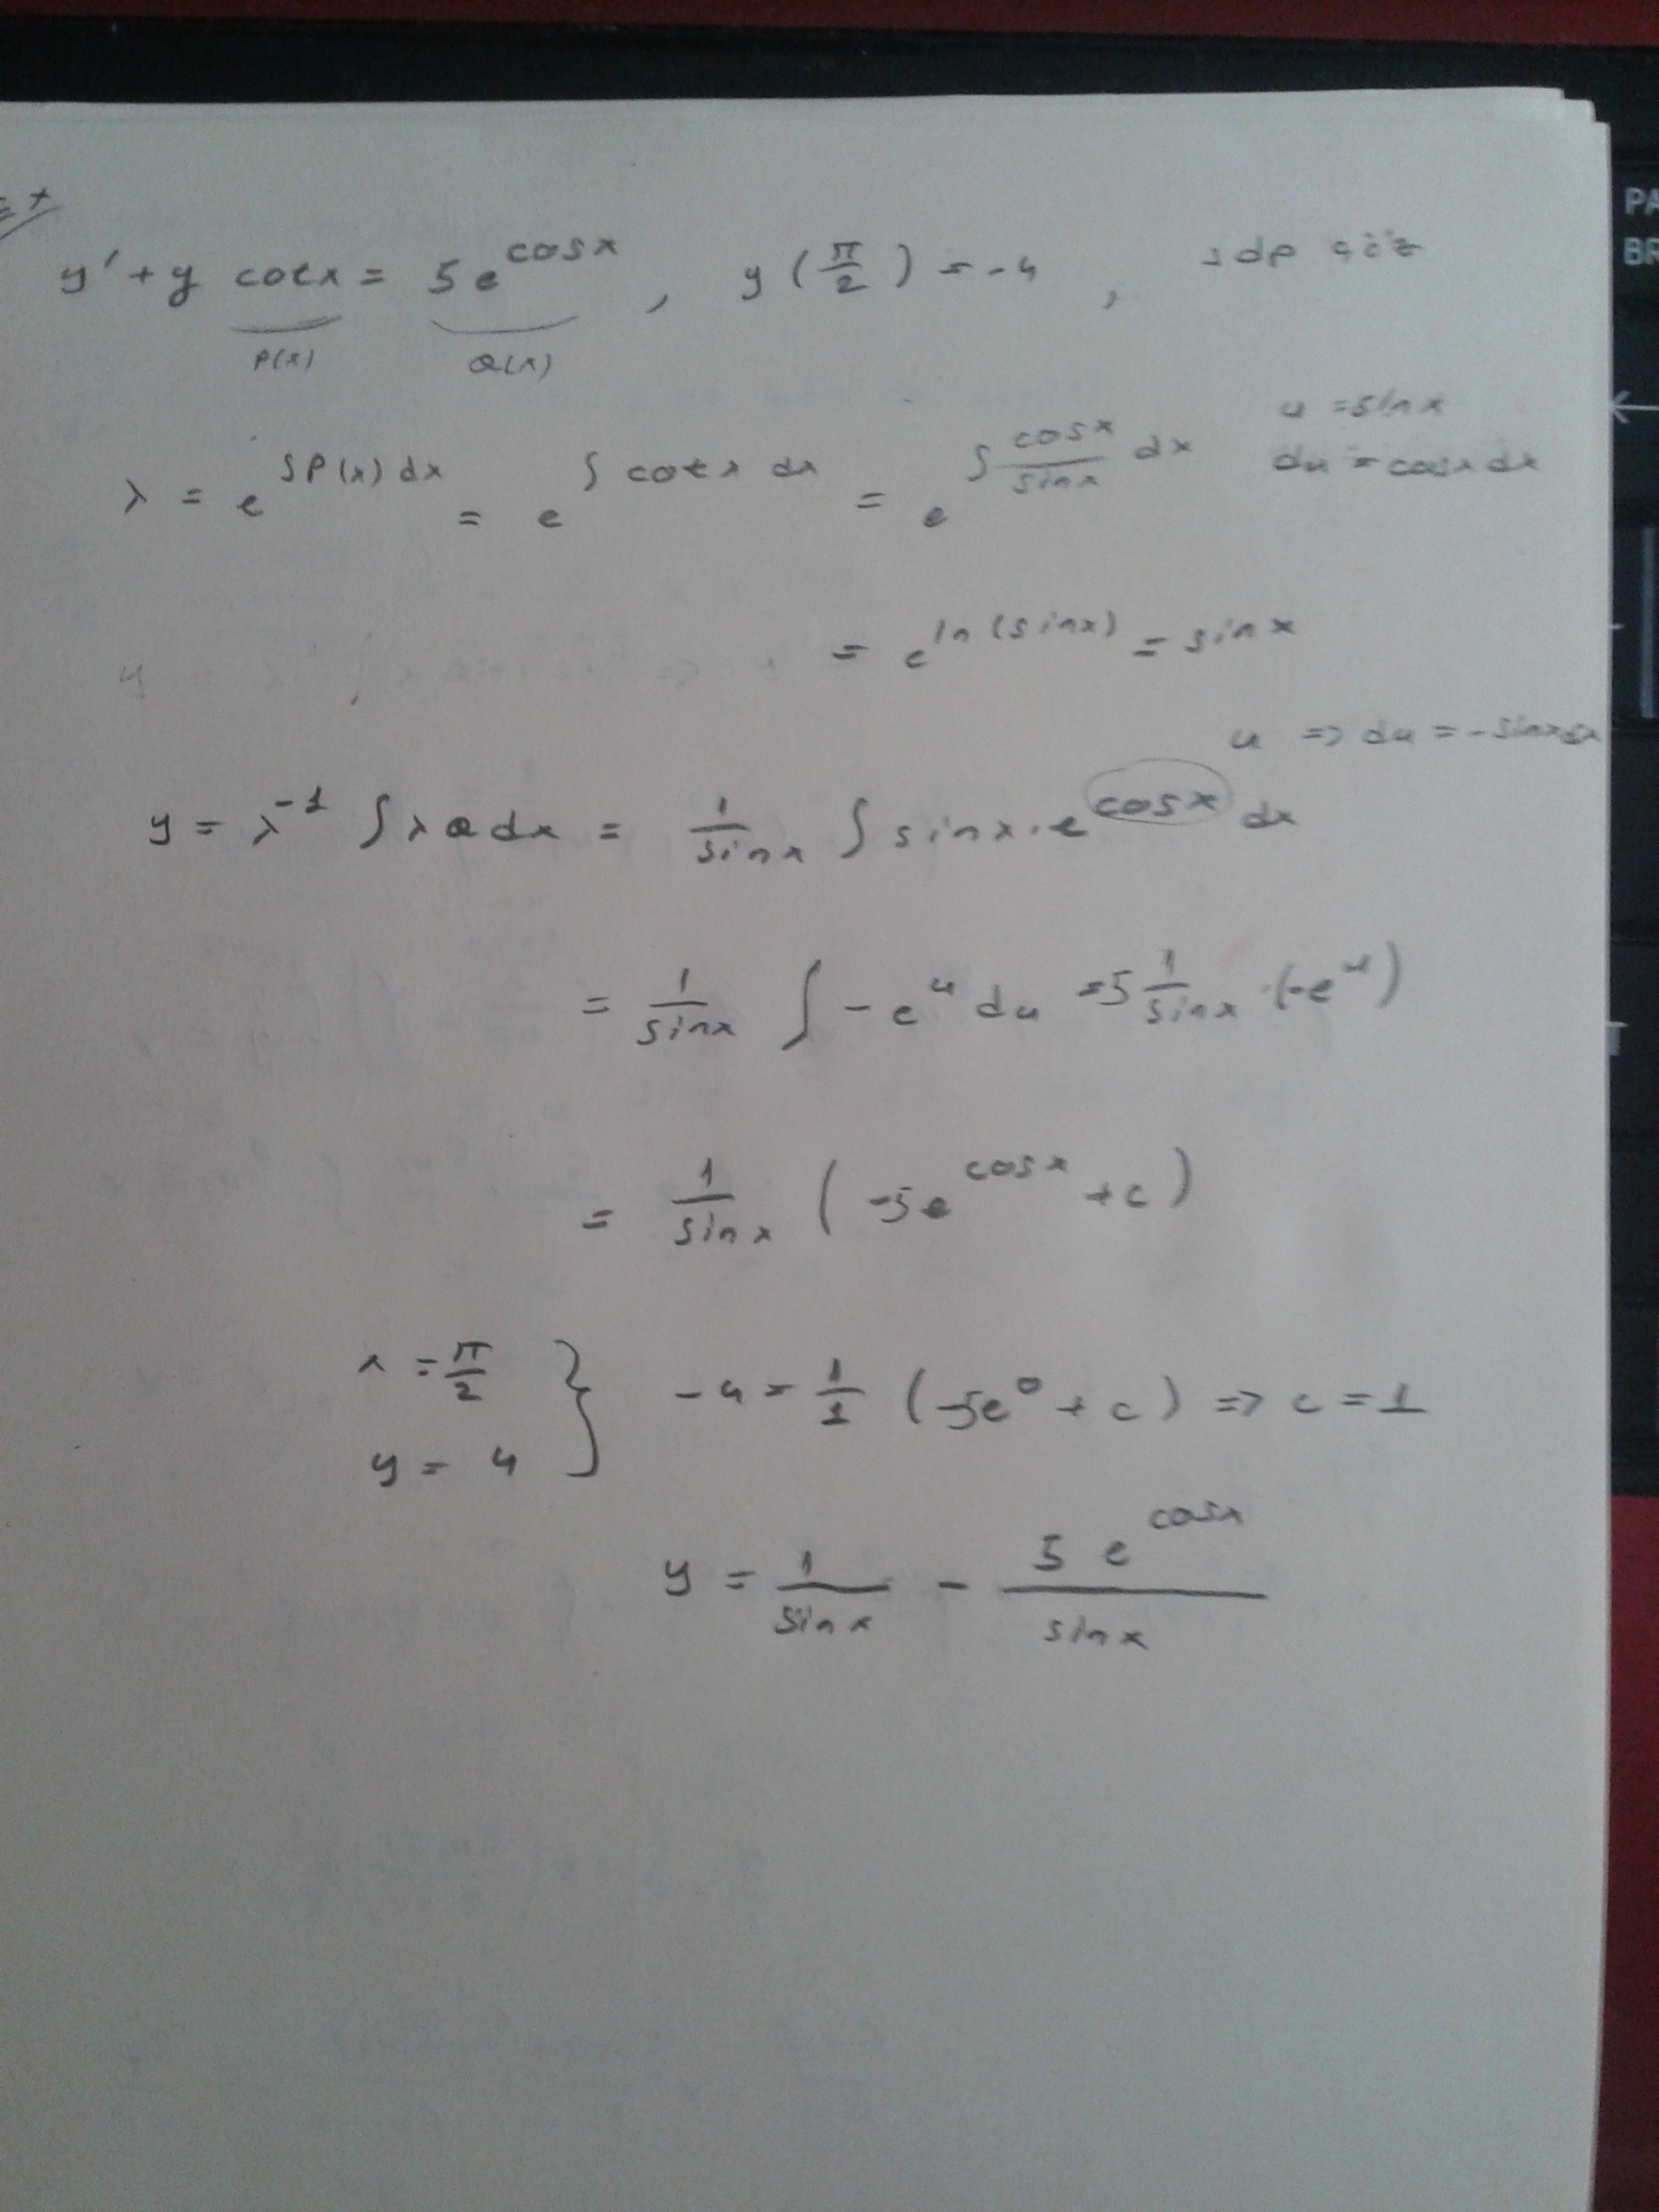 y' + y cotx = 5e^cosx , y(π/2) = -4 , sdp çöz
P(x) Q(x)
u = sinx
λ = e^∫P(x)dx = e^∫cotx dx = e^∫(cosx/sinx)dx du = cosx dx
= e^ln(sinx) = sinx
y
u => du = -sinxdx
y = λ^-1 ∫λQdx = 1/sinx ∫sinx.e^cosx dx
= 1/sinx ∫-e^u du = 5 1/sinx .(-e^u)
= 1/sinx (-5e^cosx + c)
x = π/2 } -4 = 1/1 (-5e^0 + c) => c = 1
y = 4
y = 1/sinx - 5e^cosx/sinx
PA
BR